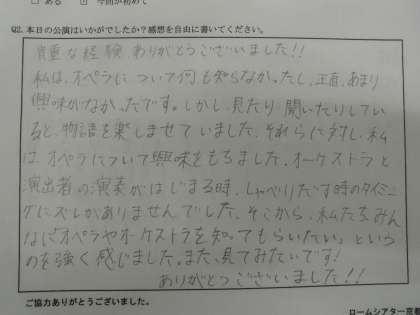 □ ある ☑ 今回が初めて
Q2. 本日の公演はいかがでしたか?感想を自由に書いてください。
貴重な経験 ありがとうございました!!
私は、オペラに ついて何も知らなかったし、正直、あまり
興味がなかったです。しかし、見たり 聞いたりしてい
ると、物語を楽しませて いました。それらに対し、私
は、オペラについて興味をもちました。オーケストラと
演出者の演奏がはじまる時、しゃべりだす時のタイミン
グにズレがありませんでした。そこから、私たちみん
なに「オペラやオーケストラを知ってもらいたい」という
のを強く感じました。また、見てみたいです!
ありがとうございました!!
ご協力ありがとうございました。
ロームシアター京都